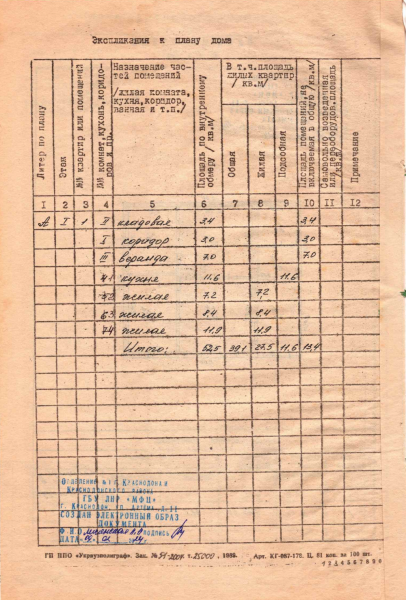 Экспликация к плану дома
Литер по плану
Этаж
№№ квартир или помещений
№№ комнат, кухонь, коридоров и пр.
Назначение час-
тей помещений
/жилая комната,
кухня, коридор,
ванная и т.п./
Площадь по внутреннему
обмеру /кв.м/
В т.ч. площадь
жилых квартир
/кв.м/
Общая
Жилая
Подсобная
Площадь помещений, не
включаемая в общую /кв.м/
Самовольно возведенная
или переоборудов. площадь
/кв.м/
Примечание
I 2 3 4 5 6 7 8 9 10 II 12
А I 1 II кладовая 3.4 3.4
I коридор 3.0 3.0
III веранда 7.0 7.0
1 кухня 11.6 11.6
2 жилая 7.2 7.2
3 жилая 8.4 8.4
4 жилая 11.9 11.9
Итого: 52.5 39.1 27.5 11.6 13.4
ОТДЕЛЕНИЕ №1 Г. КРАСНОДОНА И
КРАСНОДОНСКОГО РАЙОНА
ГБУ ЛНР «МФЦ»
СОЗДАН ЭЛЕКТРОННЫЙ ОБРАЗ
ДОКУМЕНТА
Ф.И.О. ПОДПИСЬ
ДАТА
ГП ППО «Укрвузполиграф». Зак. № т. 25000, 1989. Арт. КГ-967-176. Ц. 81 коп. за 100 шт.
1234567890